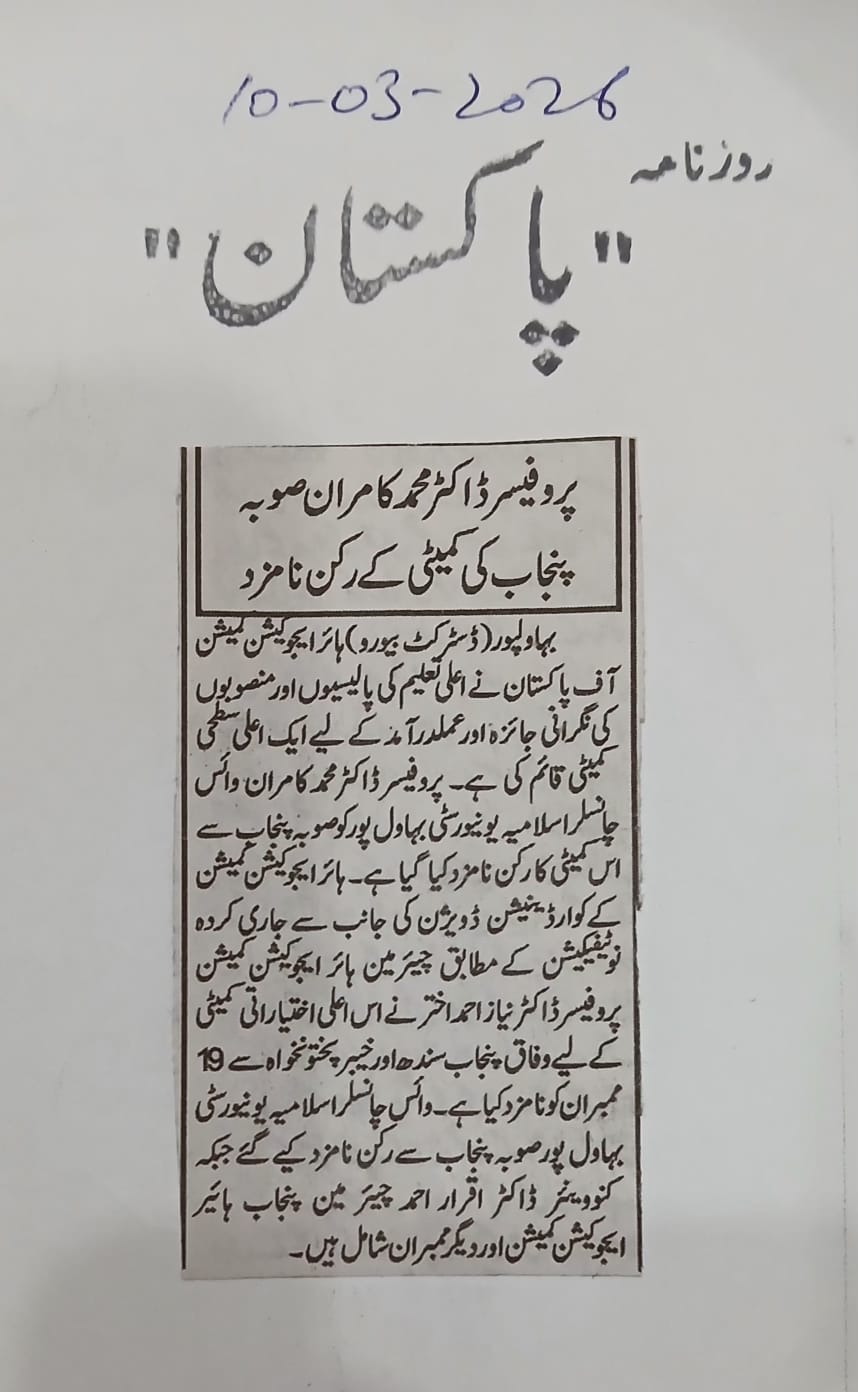 10-03-2026
روزنامہ
"پاکستان"
پروفیسر ڈاکٹر محمد کامران صوبہ
پنجاب کی کمیٹی کے رکن نامزد
بہاولپور (ڈسٹرکٹ بیورو) ہائر ایجوکیشن کمیشن
آف پاکستان نے اعلیٰ تعلیم کی پالیسیوں اور منصوبوں
کی نگرانی جائزہ اور عملدرآمد کے لیے ایک اعلیٰ سطحی
کمیٹی قائم کی ہے۔ پروفیسر ڈاکٹر محمد کامران وائس
چانسلر اسلامیہ یونیورسٹی بہاول پور کو صوبہ پنجاب سے
اس کمیٹی کا رکن نامزد کیا گیا ہے۔ ہائر ایجوکیشن کمیشن
کے کوارڈینیشن ڈویژن کی جانب سے جاری کردہ
نوٹیفیکیشن کے مطابق چیئرمین ہائر ایجوکیشن کمیشن
پروفیسر ڈاکٹر نیاز احمد اختر نے اس اعلیٰ اختیاراتی کمیٹی
کے لیے وفاق پنجاب سندھ اور خیبر پختونخواہ سے 19
ممبران کو نامزد کیا ہے۔ وائس چانسلر اسلامیہ یونیورسٹی
بہاول پور صوبہ پنجاب سے رکن نامزد کیے گئے جبکہ
کنووینئر ڈاکٹر اقرار احمد چیئر مین پنجاب ہائیر
ایجوکیشن کمیشن اور دیگر ممبران شامل ہیں۔